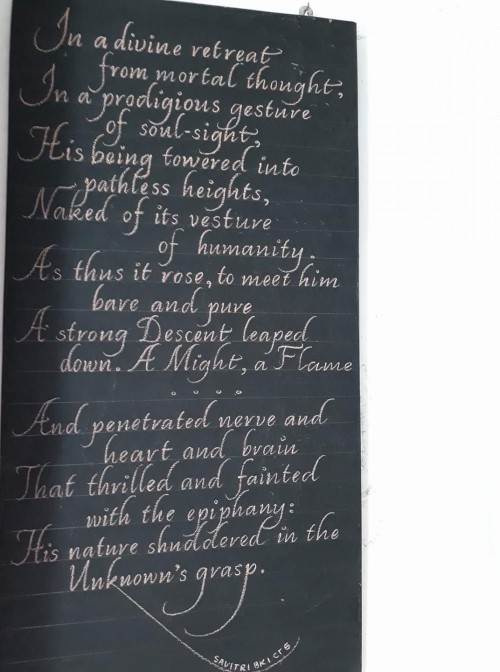 In a divine retreat
from mortal thought,
In a prodigious gesture
of soul-sight,
His being towered into
pathless heights,
Naked of its vesture
of humanity.
As thus it rose, to meet him
bare and pure
A strong Descent leaped
down. A Might, a Flame
. . . .
And penetrated nerve and
heart and brain
That thrilled and fainted
with the epiphany:
His nature shuddered in the
Unknown's grasp.
SAVITRI BK I CT 5